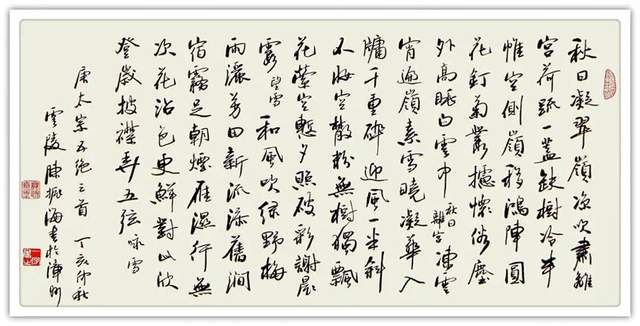 秋日凝翠嶺凉吹肅離
宮荷疏一蓋缺樹冷半
帷空側嶺移鴻陣圓
花釘菊叢攄懷俗塵
外高眺白雲中 秋日 凍雲
宵遍嶺素雪曉凝華入
牖千重碎迎風一半斜
不妝空散粉無樹獨飄
花縈空慙夕照破彩謝晨
霞 望雪 和風吹綠野梅
雨灑芳田新流添舊澗
宿霧足朝煙雁濕行無
次花沾色更鮮對此欣
登歲披襟弄五弦 咏雪
唐太宗五絕三首 丁亥仲秋
雲陵陳振海書於漳州